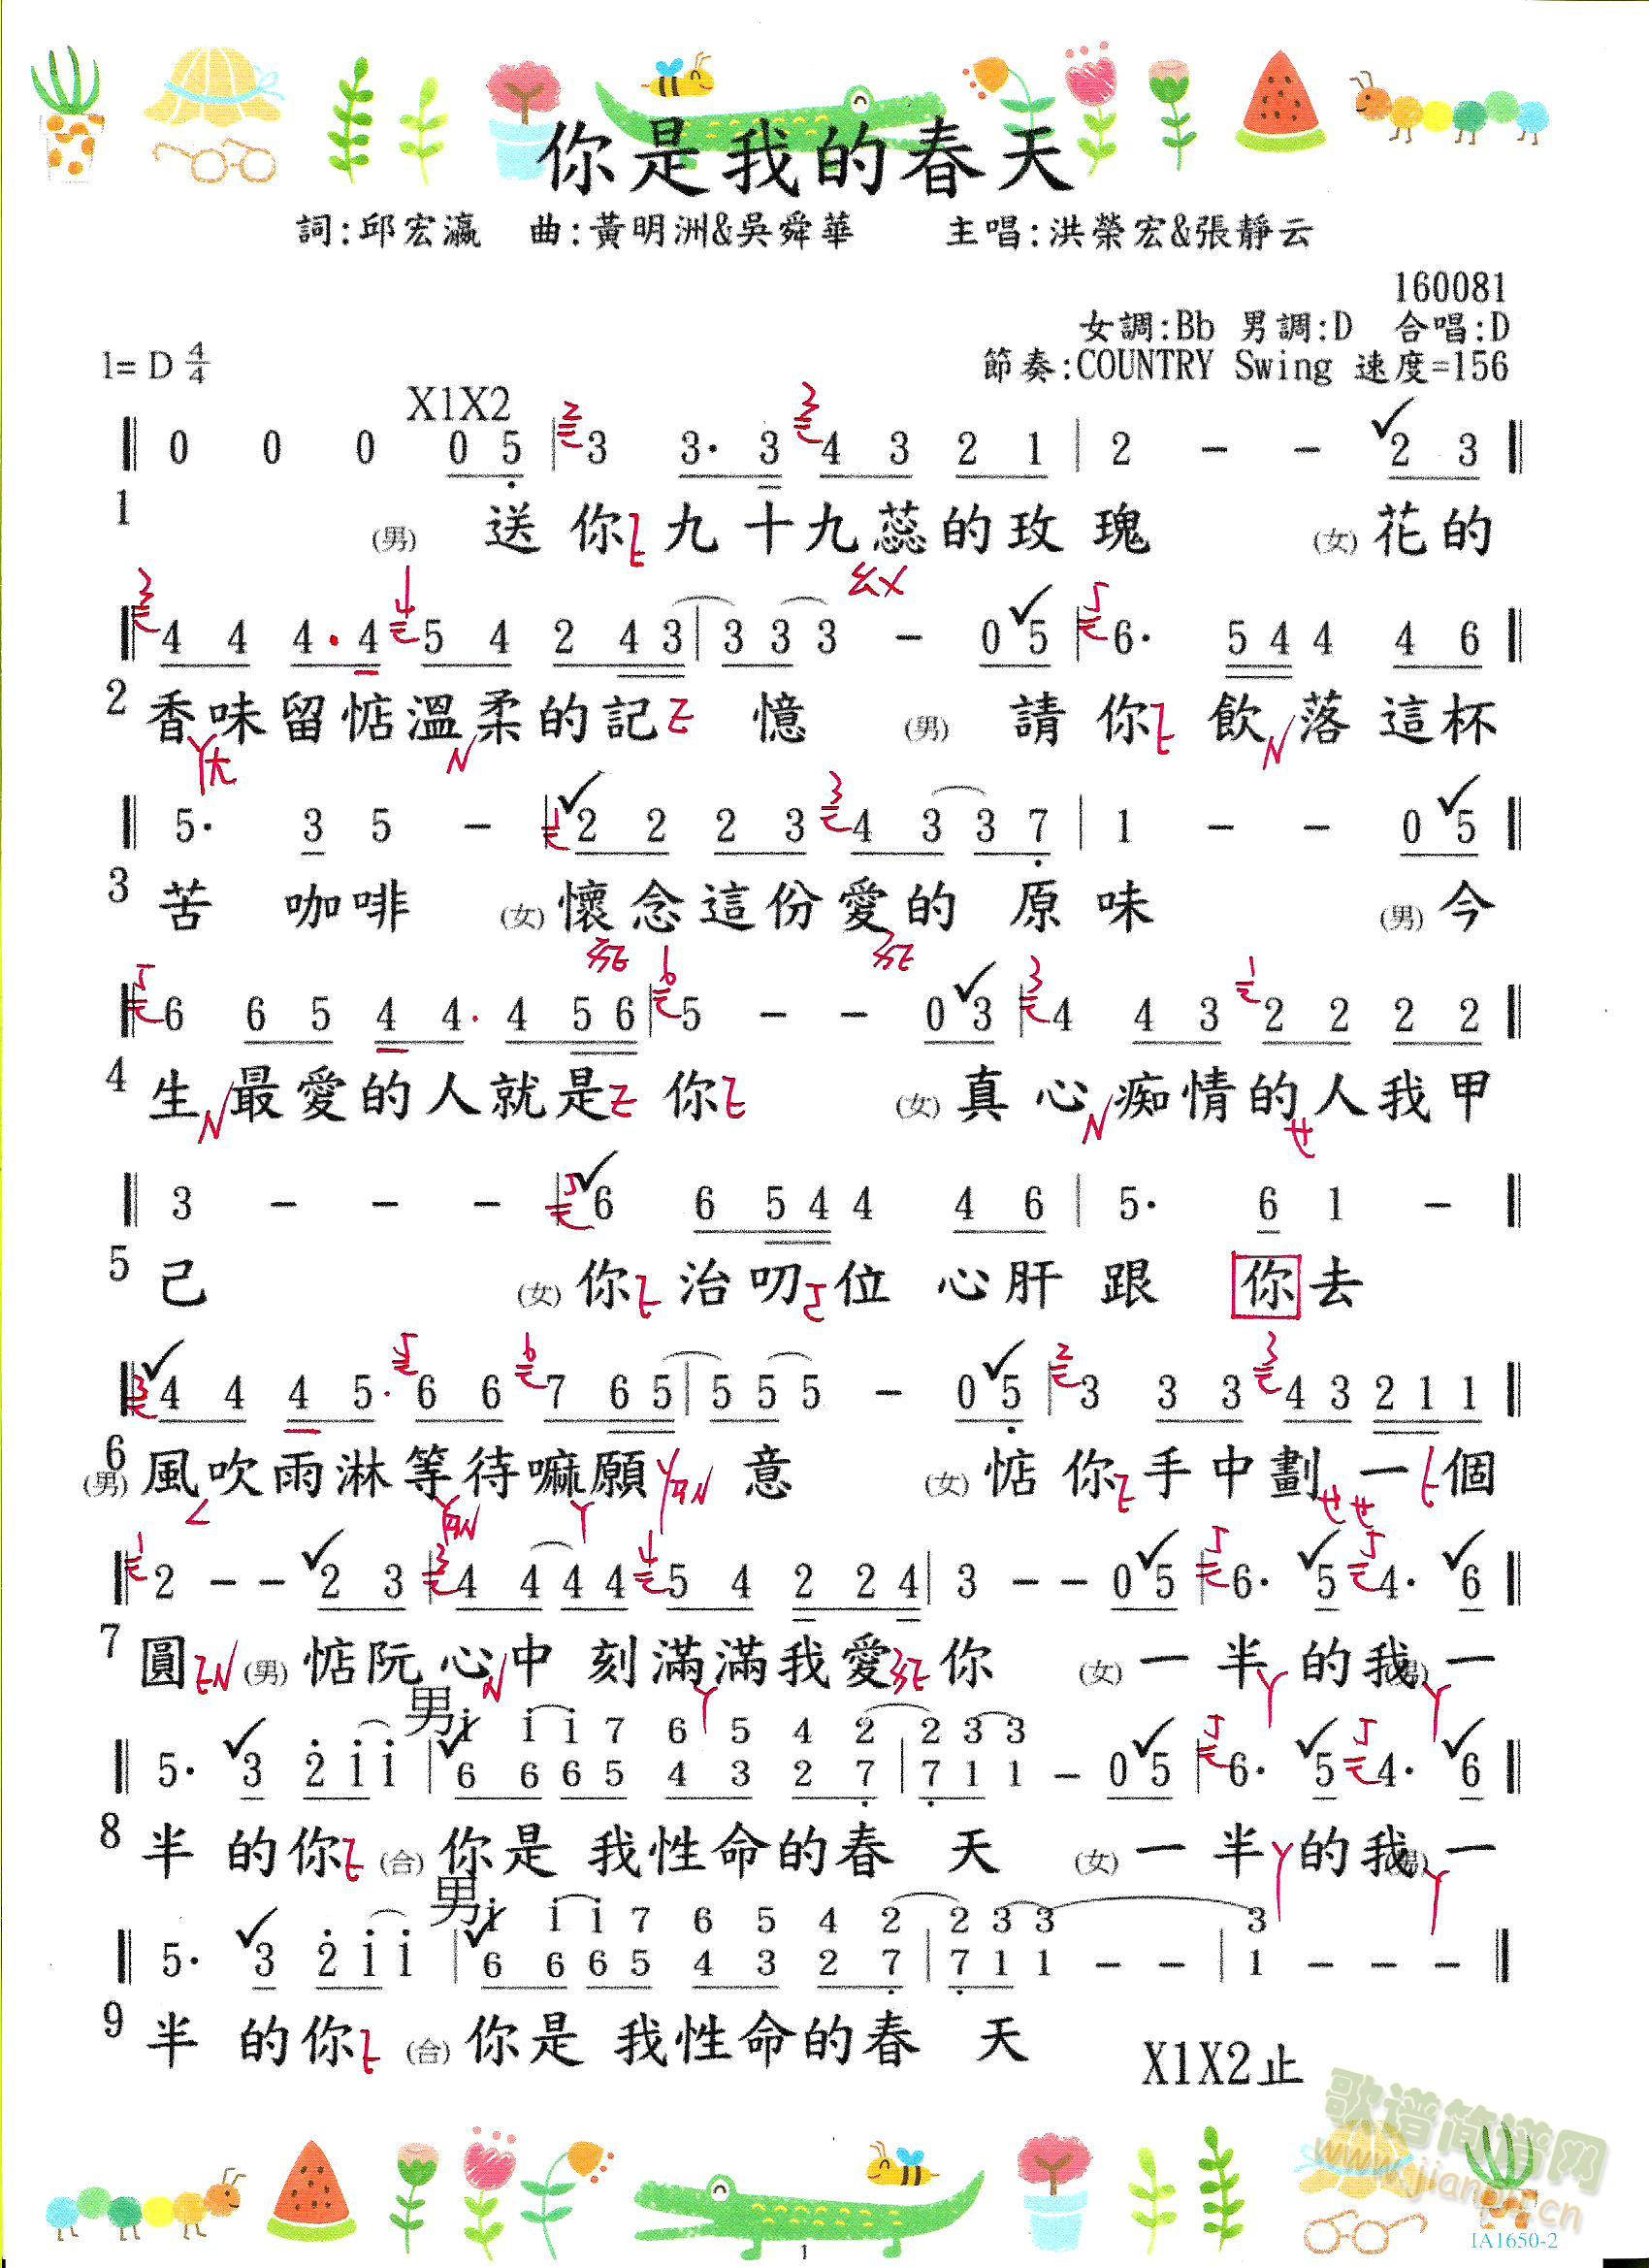 你是我的春天
詞:邱宏瀛 曲:黃明洲&吳舜華 主唱:洪榮宏&張靜云
160081
女調:Bb 男調:D 合唱:D
1= D 4/4 節奏:COUNTRY Swing 速度=156
X1X2
0 0 0 0 5 | 3 3· 3 4 3 2 1 | 2 - - 2 3
1 (男) 送你九十九蕊的玫瑰 (女) 花的
4 4 4· 4 5 4 2 4 3 | 3 3 3 - 0 5 | 6· 5 4 4 4 6
2 香味留惦溫柔的記憶 (男) 請你飲落這杯
5· 3 5 - | 2 2 2 3 4 3 3 7 | 1 - - 0 5
3 苦咖啡 (女) 懷念這份愛的原味 (男) 今
6 6 5 4 4· 4 5 6 | 5 - - 0 3 | 4 4 3 2 2 2 2
4 生最愛的人就是你 (女) 真心痴情的人我甲
3 - - - | 6 6 5 4 4 4 6 | 5· 6 1 -
5 己 (女) 你治叨位心肝跟你去
4 4 4 5· 6 6 7 6 5 | 5 5 5 - 0 5 | 3 3 3 4 3 2 1 1
6 (男) 風吹雨淋等待嘛願意 (女) 惦你手中劃一個
2 - - 2 3 | 4 4 4 4 5 4 2 2 4 | 3 - - 0 5 | 6· 5 4· 6
7 圓 (男) 惦阮心中刻滿滿我愛你 (女) 一半的我 (男) 一
男 i i i 7 6 5 4 2 | 2 3 3
5· 3 2 i i | 6 6 6 5 4 3 2 7 | 7 1 1 - 0 5 | 6· 5 4· 6
8 半的你 (合) 你是我性命的春天 (女) 一半的我 (男) 一
男 i i i 7 6 5 4 2 | 2 3 3 3
5· 3 2 i i | 6 6 6 5 4 3 2 7 | 7 1 1 - - | 1 - - -
9 半的你 (合) 你是我性命的春天
X1X2止
歌谱简谱网
www.jianpu.cn
IA1650-2
1